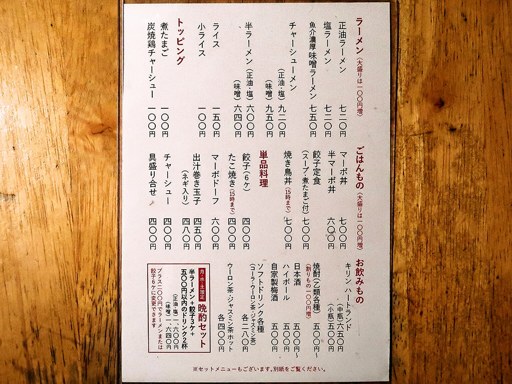 ラーメン（大盛りは一〇〇円増）
正油ラーメン 七二〇円
塩ラーメン 七二〇円
魚介濃厚味噌ラーメン 七五〇円
チャーシューメン
（正油・塩）九二〇円
（味噌）九五〇円
半ラーメン（正油・塩）六〇〇円
（味噌）六四〇円
ライス 一五〇円
小ライス 一〇〇円
トッピング
煮たまご 一〇〇円
炭焼鶏チャーシュー 一〇〇円
ごはんもの（大盛りは一〇〇円増）
マーボ丼 七〇〇円
半マーボ丼 六〇〇円
餃子定食 七〇〇円
（スープ・煮たまご付）
焼き鳥丼（15時まで）七〇〇円
単品料理
餃子（6ヶ）四〇〇円
たこ焼き（15時まで）四〇〇円
マーボドーフ 六〇〇円
出汁巻き玉子 四五〇円
（ネギ入り）四八〇円
チャーシュー 四〇〇円
具盛り合せ 四〇〇円
お飲みもの
キリン ハートランド
（中瓶）六五〇円
（小瓶）五五〇円
焼酎（乙類各種）五〇〇円〜
（割りもの一〇〇円増）
日本酒 五〇〇円〜
ハイボール 五〇〇円
自家製梅酒 五〇〇円
ソフトドリンク各種 各二八〇円
（コーラ・ウーロン茶・ジャスミン茶）
ウーロン茶・ジャスミン茶ホット
各四〇〇円
晩酌セット
半ラーメン＋餃子3ヶ＋
五〇〇円以内のドリンク2杯
（正油・塩）一、六〇〇円
（味噌）一、六四〇円
プラス二〇〇円でラーメンまたは
餃子6ヶに変更できます
※セットメニューもございます。別紙をご覧ください。